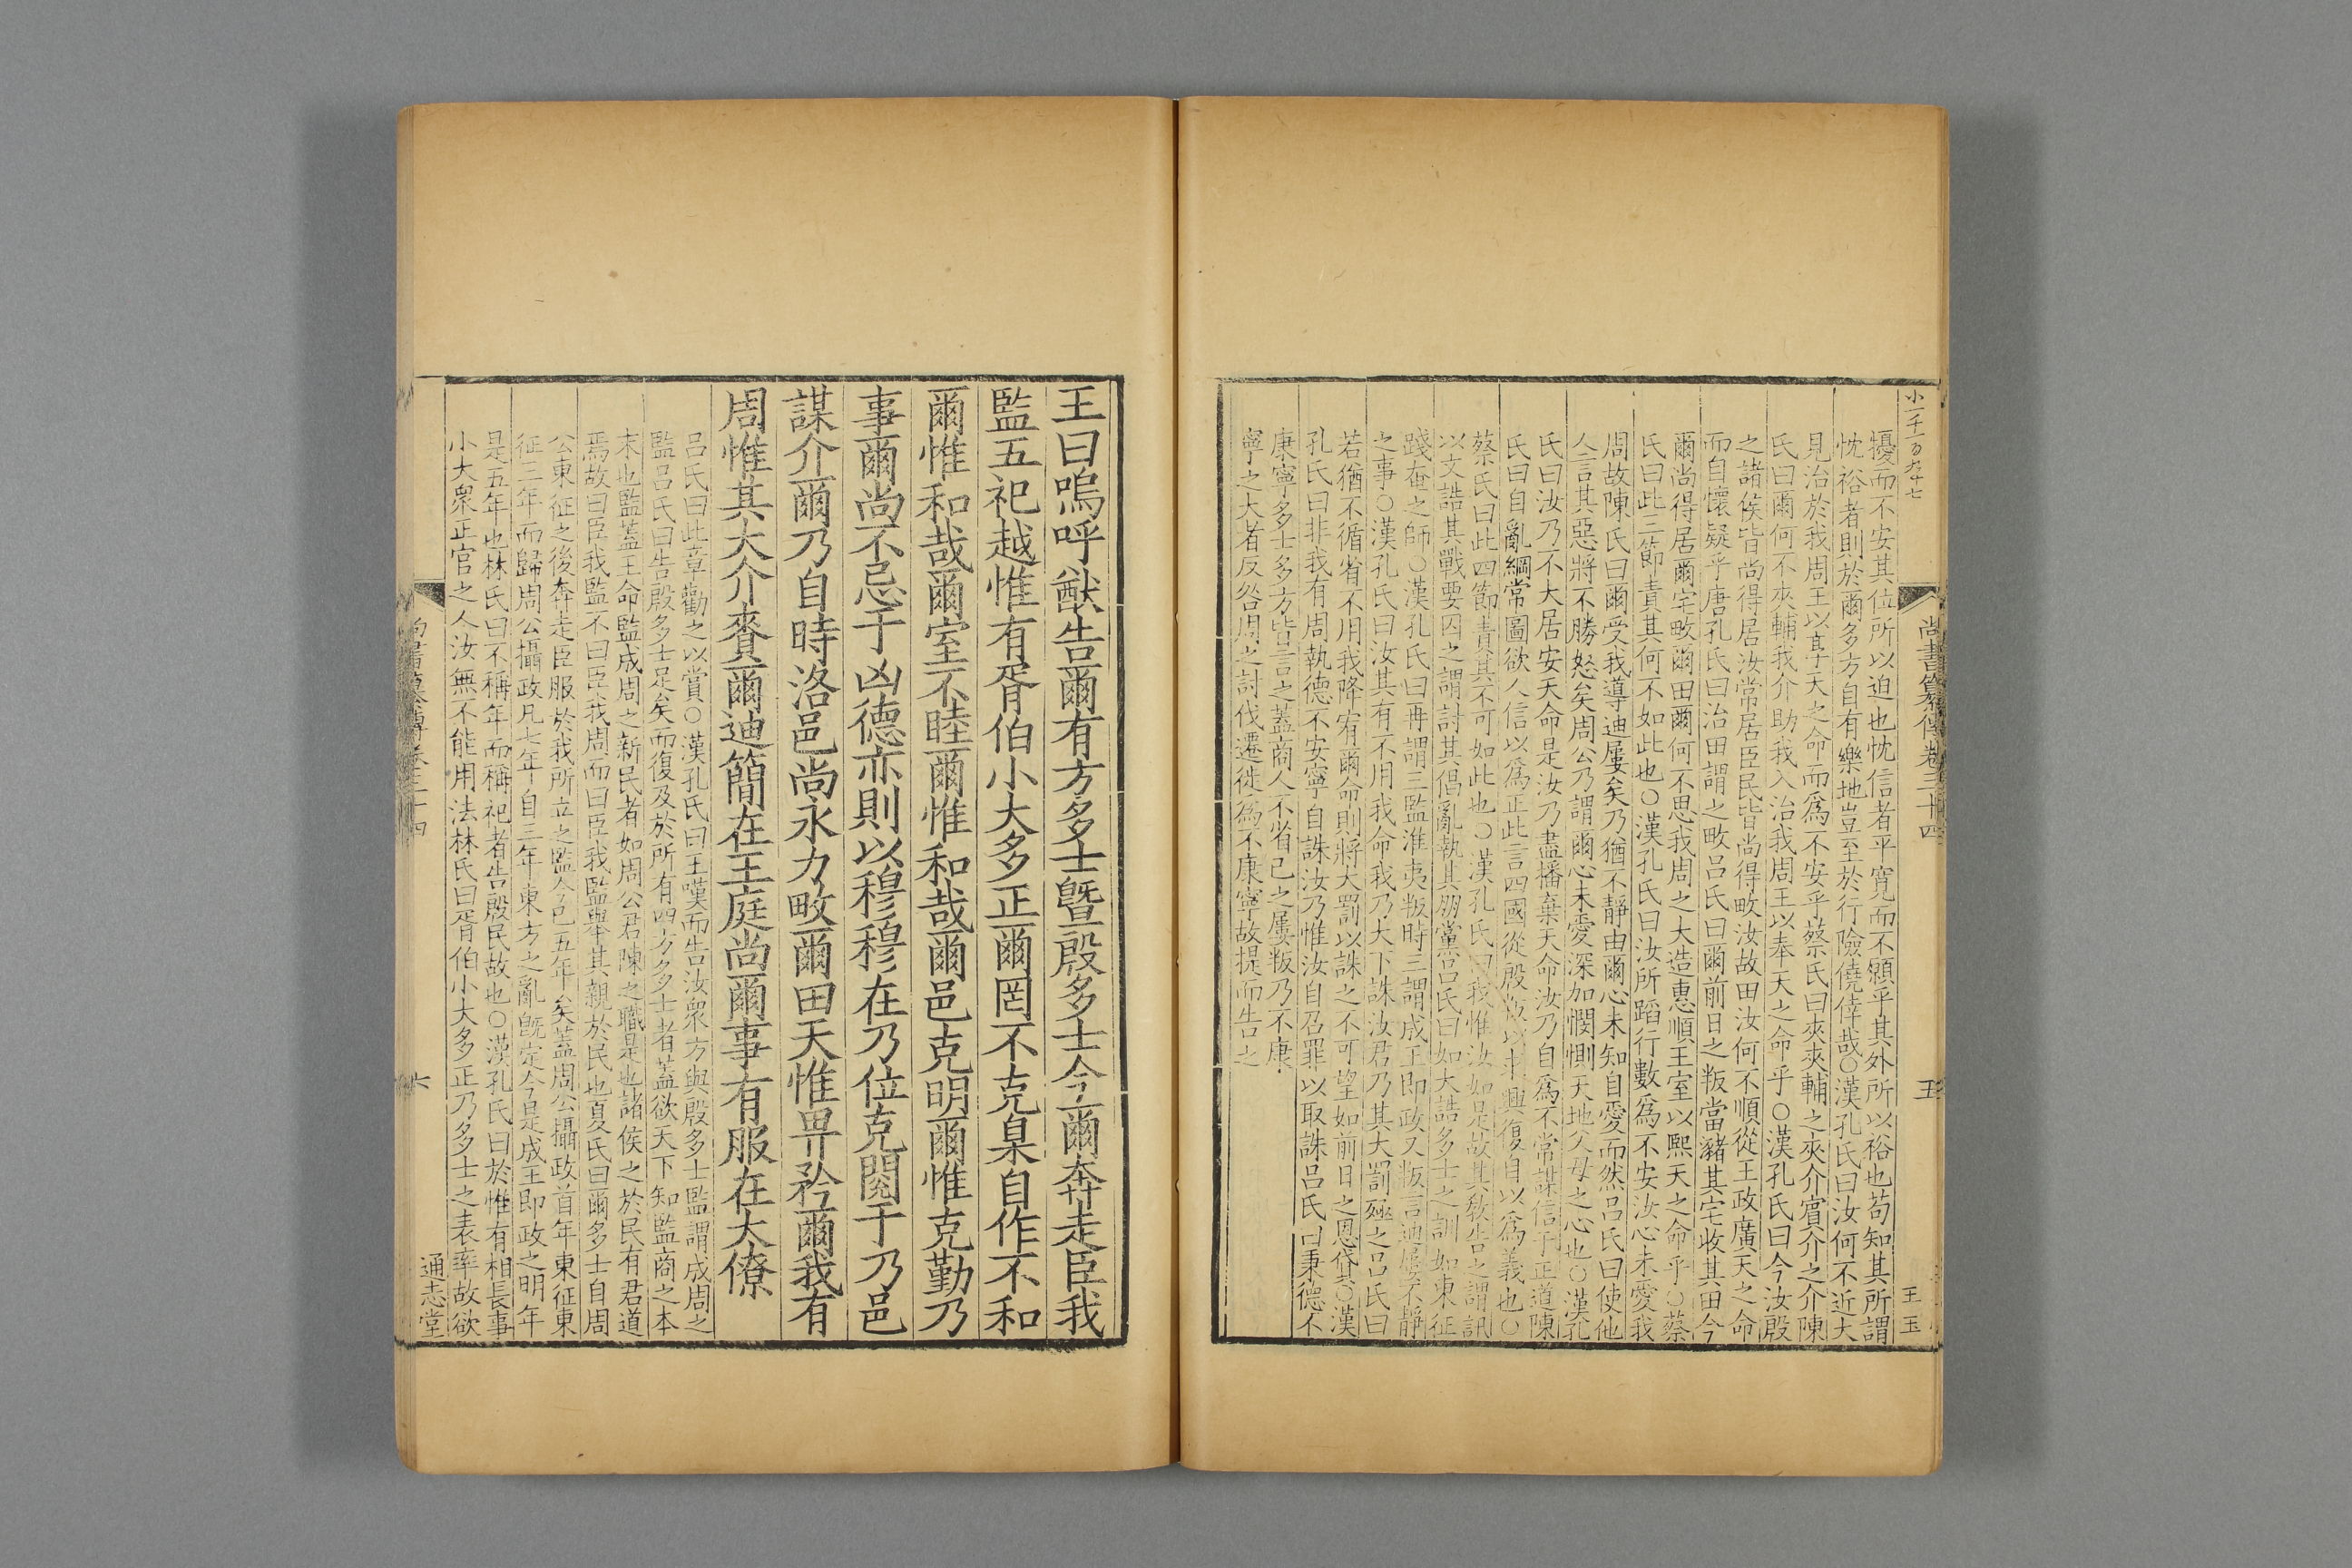 小一千一百九十七
擾而不安其位所以迫也忱信者平寛而不願乎其外所以裕也苟知其所謂
忱裕者則於爾多方自有樂地豈至於行險僥倖哉○漢孔氏曰汝何不近大
見治於我周王以享天之命而爲不安乎蔡氏曰夾夾輔之夾介賓介之介陳
氏曰爾何不夾輔我介助我入治我周王以奉天之命乎○漢孔氏曰今汝殷
之諸侯皆尚得居汝常居臣民皆尚得畋汝故田汝何不順從王政廣天之命
而自懷疑乎唐孔氏曰治田謂之畋呂氏曰爾前日之叛當瀦其宅收其田今
爾尚得居爾宅畋爾田爾何不思我周之大造惠順王室以熙天之命乎○蔡
氏曰此三節責其何不如此也○漢孔氏曰汝所蹈行數爲不安汝心未愛我
周故陳氏曰爾受我導迪屢矣乃猶不靜由爾心未知自愛而然呂氏曰使他
人言其惡將不勝怒矣周公乃謂爾心未愛深加憫惻天地父母之心也○漢孔
氏曰汝乃不大居安天命是汝乃盡播棄天命汝乃自爲不常謀信于正道陳
氏曰自亂綱常圖欲人信以爲正此言四國從殷叛以求興復自以爲義也○
蔡氏曰此四節責其不可如此也○漢孔氏曰我惟汝如是故其敎告之謂訊
以文誥其戰要囚之謂討其倡亂執其朋黨呂氏曰如大誥多士之訓如東征
踐奄之師○漢孔氏曰再謂三監淮夷叛時三謂成王即政又叛言迪屢不靜
之事○漢孔氏曰汝其有不用我命我乃大下誅汝君乃其大罰殛之呂氏曰
若猶不循省不用我降宥爾命則將大罰以誅之不可望如前日之恩貸○漢
孔氏曰非我有周執德不安寧自誅汝乃惟汝自召罪以取誅呂氏曰秉德不
康寧多士多方皆言之蓋商人不省己之屢叛乃不康
寧之大者反咎周之討伐遷徙爲不康寧故提而告之
尚書纂傳卷三十四
五
王玉
王曰嗚呼猷告爾有方多士曁殷多士今爾奔走臣我
監五祀越惟有胥伯小大多正爾罔不克臬自作不和
爾惟和哉爾室不睦爾惟和哉爾邑克明爾惟克勤乃
事爾尚不忌于凶德亦則以穆穆在乃位克閱于乃邑
謀介爾乃自時洛邑尚永力畋爾田天惟畀矜爾我有
周惟其大介賚爾迪簡在王庭尚爾事有服在大僚
呂氏曰此章勸之以賞○漢孔氏曰王嘆而告汝衆方與殷多士監謂成周之
監呂氏曰告殷多士足矣而復及於所有四方多士者蓋欲天下知監商之本
末也監蓋王命監成周之新民者如周公君陳之職是也諸侯之於民有君道
焉故曰臣我監不曰臣我周而曰臣我監舉其親於民也夏氏曰爾多士自周
公東征之後奔走臣服於我所立之監今已五年矣蓋周公攝政首年東征東
征三年而歸周公攝政凡七年自三年東方之亂旣定今是成王即政之明年
是五年也林氏曰不稱年而稱祀者告殷民故也○漢孔氏曰於惟有相長事
小大衆正官之人汝無不能用法林氏曰胥伯小大多正乃多士之表率故欲
尚書纂傳卷三十四
六
通志堂